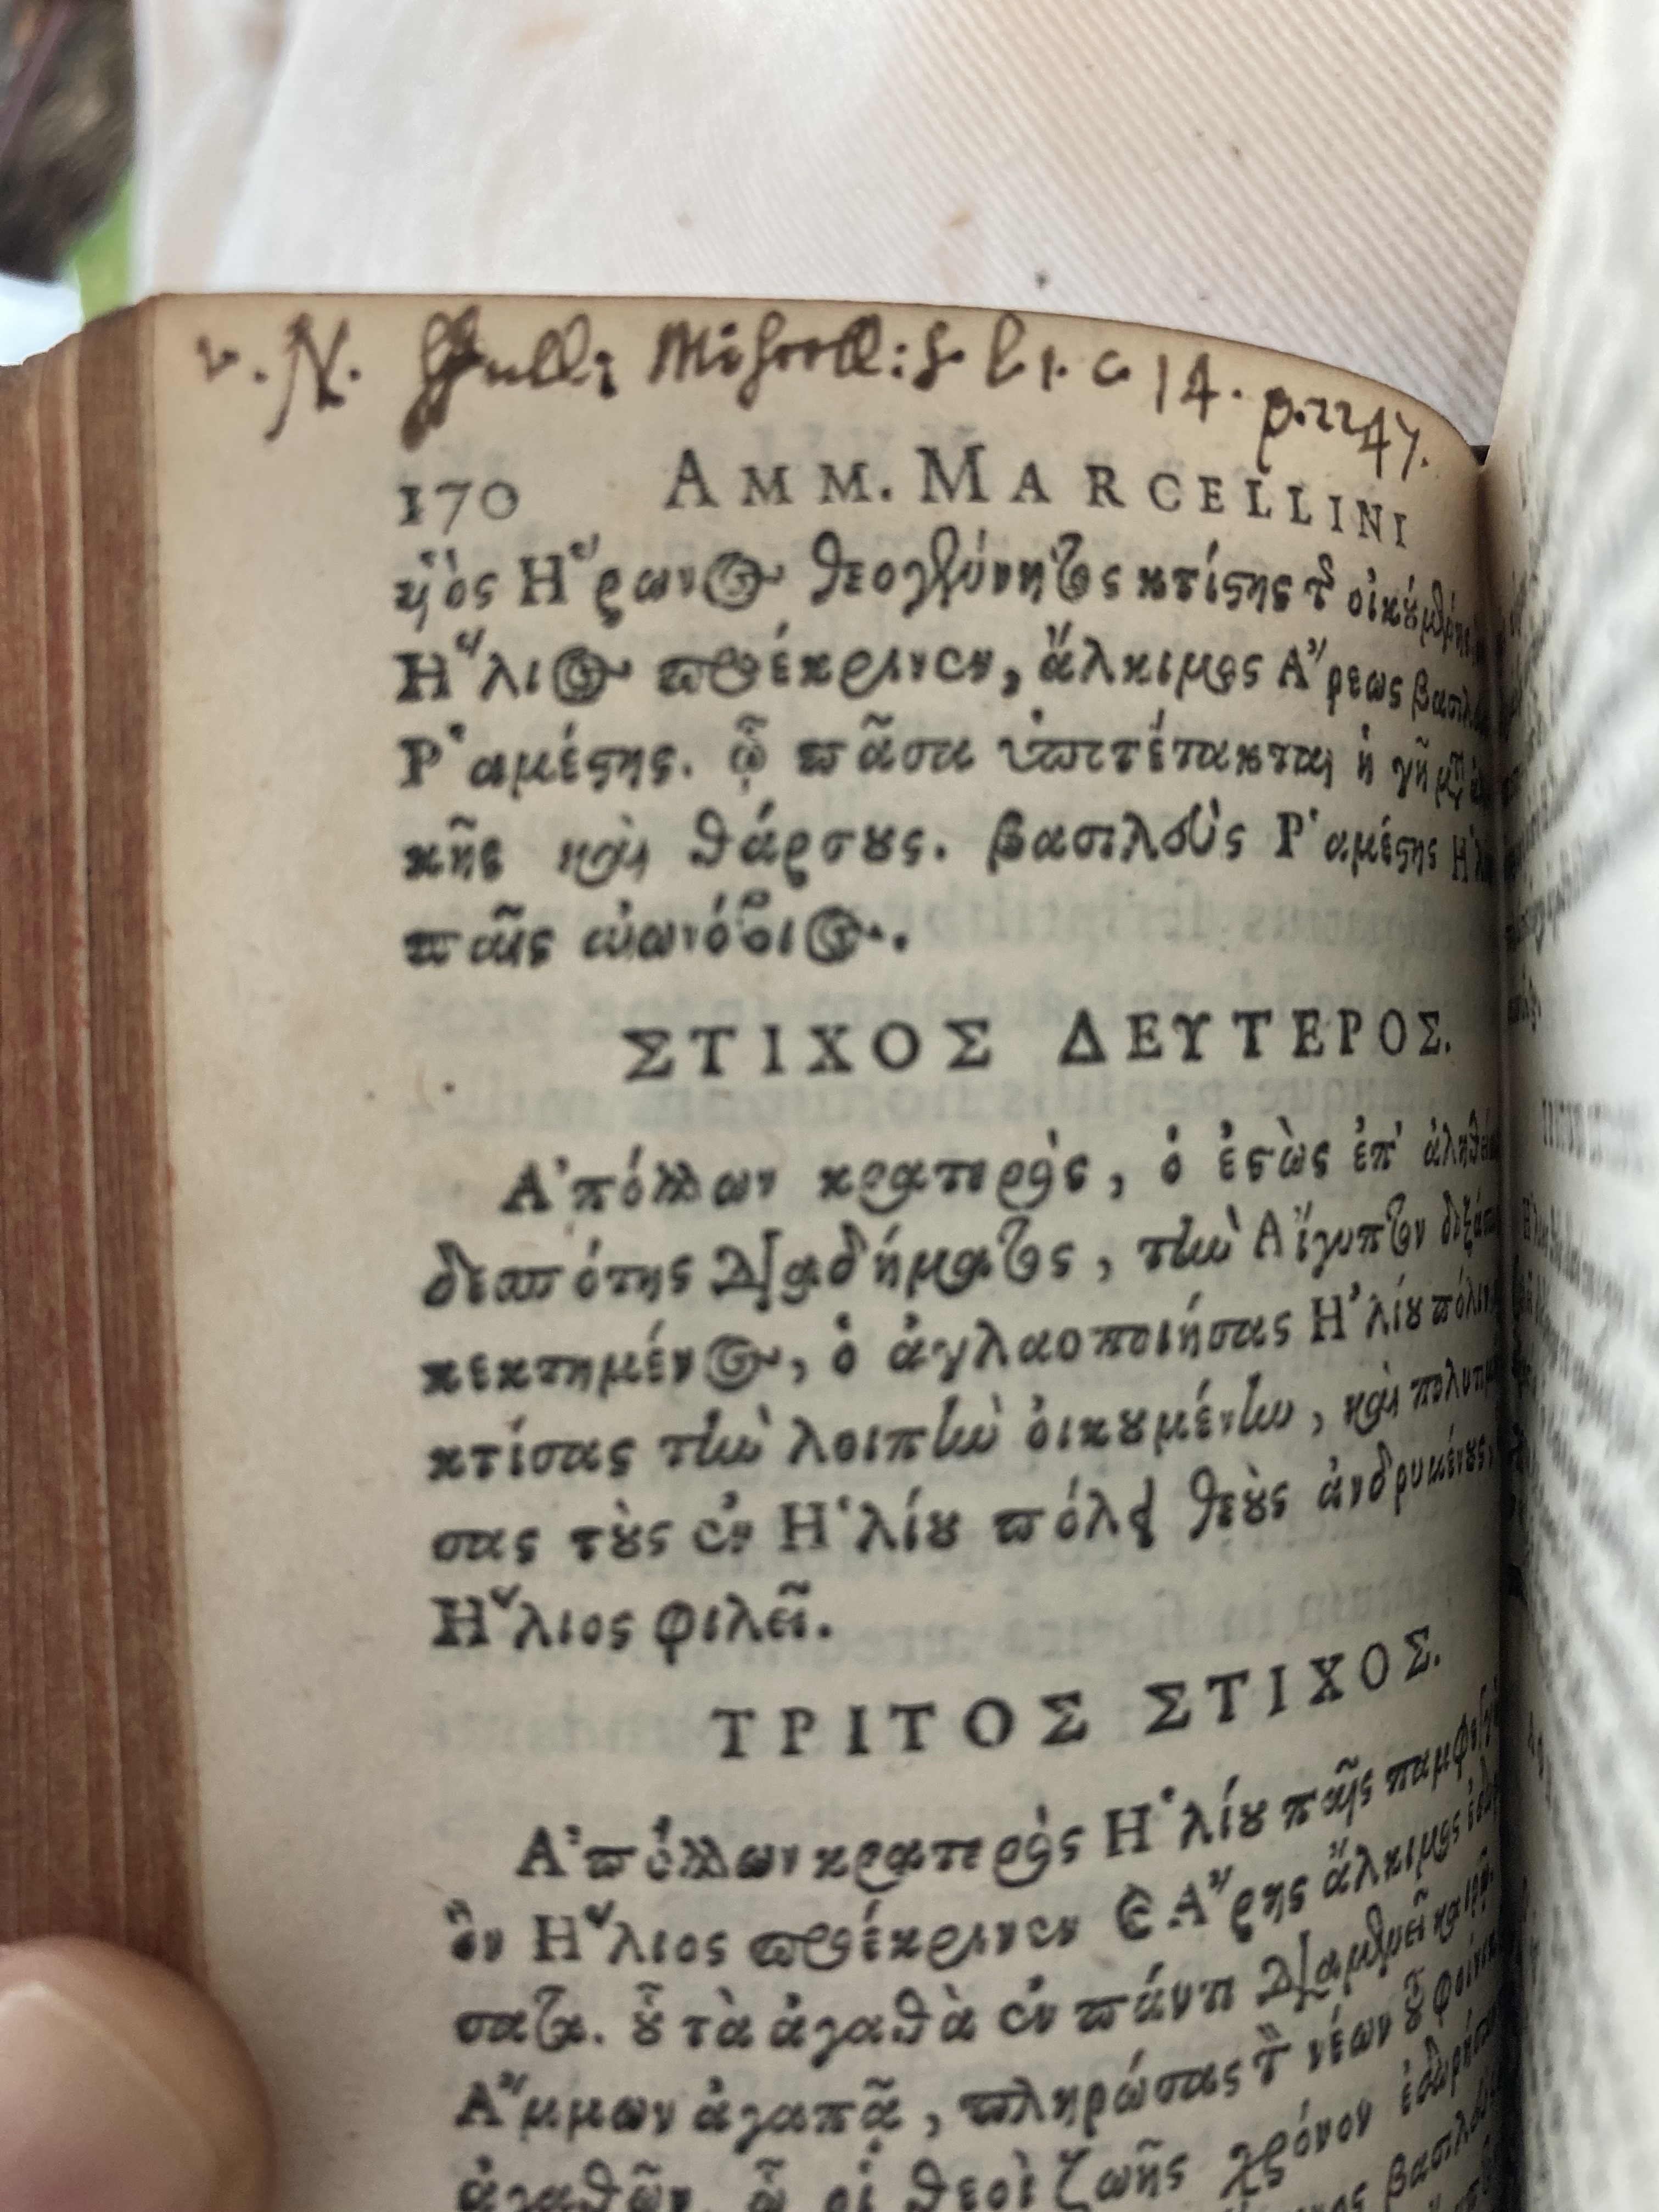 v. N. Full: Miscell: S. l. 1. c 14. p. 2247.
170 AMM. MARCELLINI
ὑιὸς Ἥρωνος θεογέννητος κτίστης τῆς
Ἥλιος προέκρινεν, ἄλκιμος Ἄρεως
Ῥαμέστης. ᾧ πᾶσα ὑποτέτακται ἡ γῆ
κῆς καὶ θάρσους. βασιλεὺς Ῥαμέστης
παῖς αἰωνόβιος.
ΣΤΙΧΟΣ ΔΕΥΤΕΡΟΣ.
Ἀπόλλων κρατερὸς, ὁ ἑστὼς ἐπ'
δεσπότης διαδήματος, τὴν Αἴγυπτον
κεκτημένος, ὁ ἀγλαοποιήσας Ἡλίουπόλιν
κτίσας τὴν λοιπὴν ὀικουμένην, καὶ
σας τοὺς ἐν Ἡλίου πόλει θεοὺς ἀνδρυκένους,
Ἥλιος φιλεῖ.
ΤΡΙΤΟΣ ΣΤΙΧΟΣ.
Ἀπόλλων κρατερὸς Ἡλίου παῖς
ὃν Ἥλιος προέκρινεν καὶ Ἄρης ἄλκιμος
σατο. οὗ τὰ ἀγαθὰ ἐν πάντι διαμένει
Ἄμμων ἀγαπᾷ, πληρώσας τὸν νέων τοῦ
ἀγαθῶν. ᾧ οἱ θεοὶ ζωῆς χρόνον